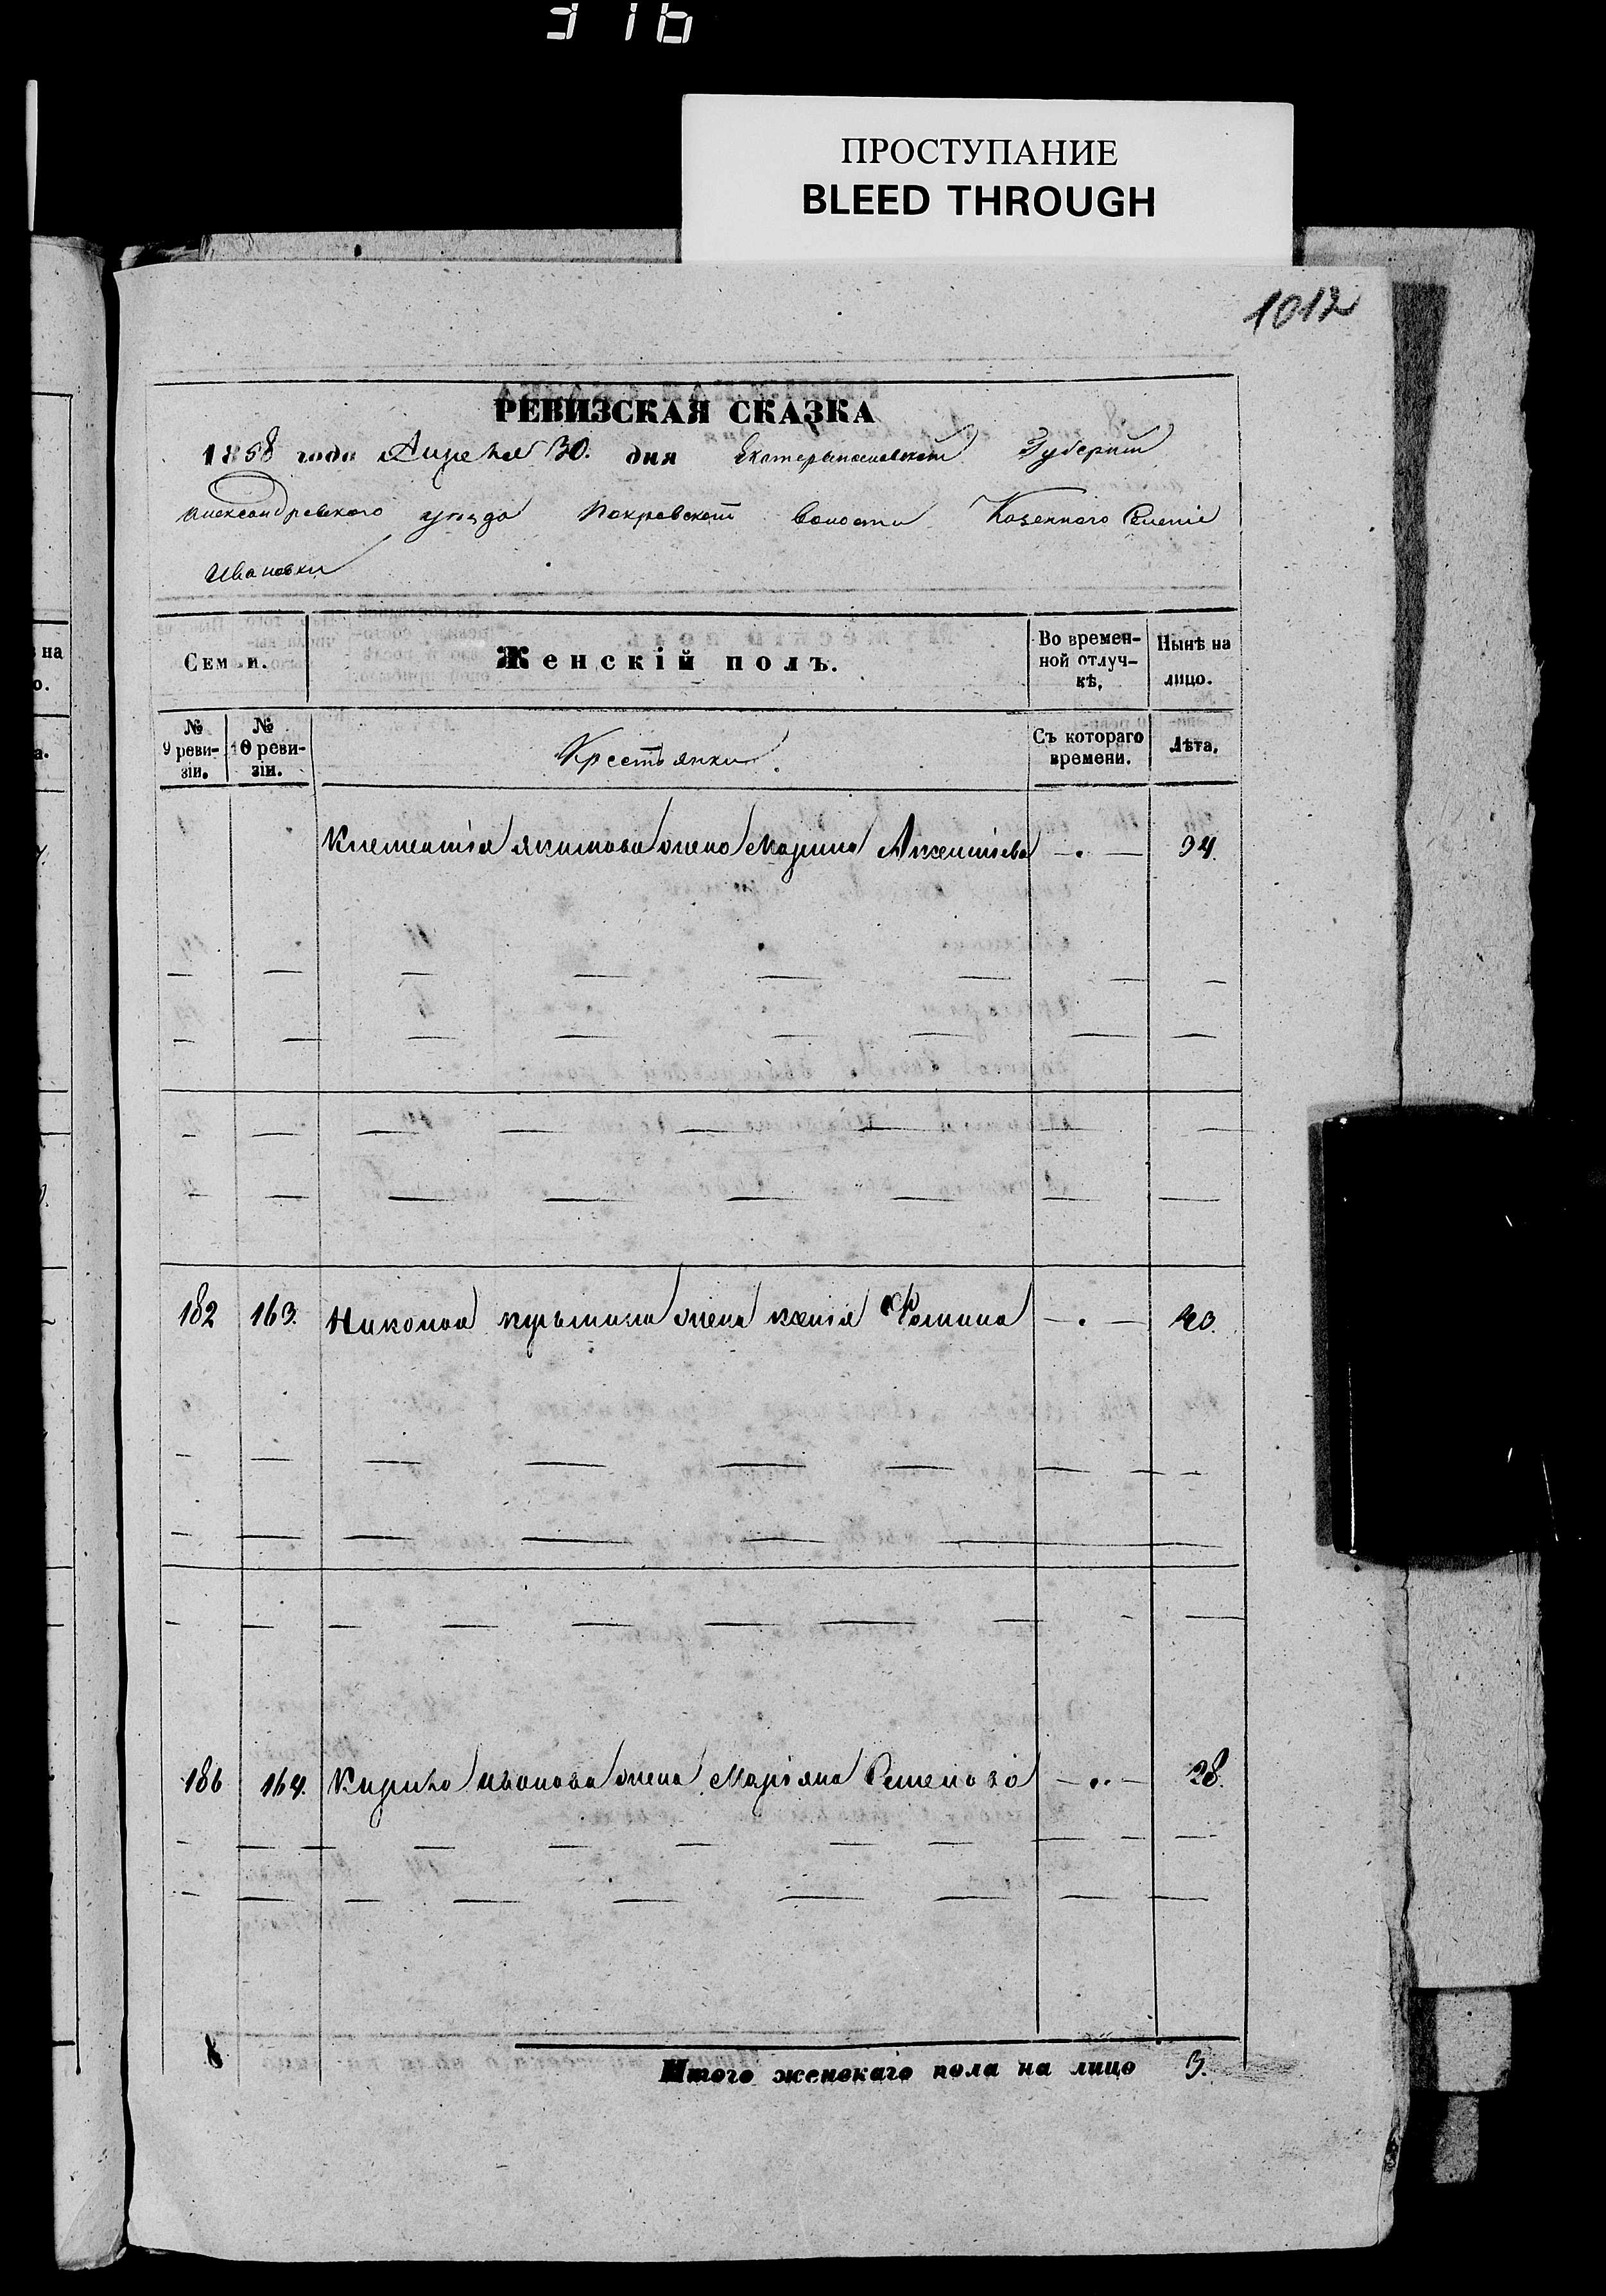 316
ПРОСТУПАНИЕ
BLEED THROUGH
1012
РЕВИЗСКАЯ СКАЗКА
1858 года Апреля 30. дня Екатеринославской Губернии
Александровского уезда Покровской волости Казенного Селенiе
Ивановки
Семьи.
Женскiй полъ.
Во времен-
ной отлуч-
кѣ,
Нынѣ на
лицо.
№
9 реви-
зiи.
№
10 реви-
зiи.
Крестьянки.
Съ котораго
времени.
Лѣта.
Клементiя Якимова жена Марина 34.
182 163. Никопа Кузьмина жена Ксенiя Фомина 40.
186 164. Кирила Иванова жена Марiяна Семенова 28.
8
Итого женскаго пола на лицо 3.
на
о.
а.